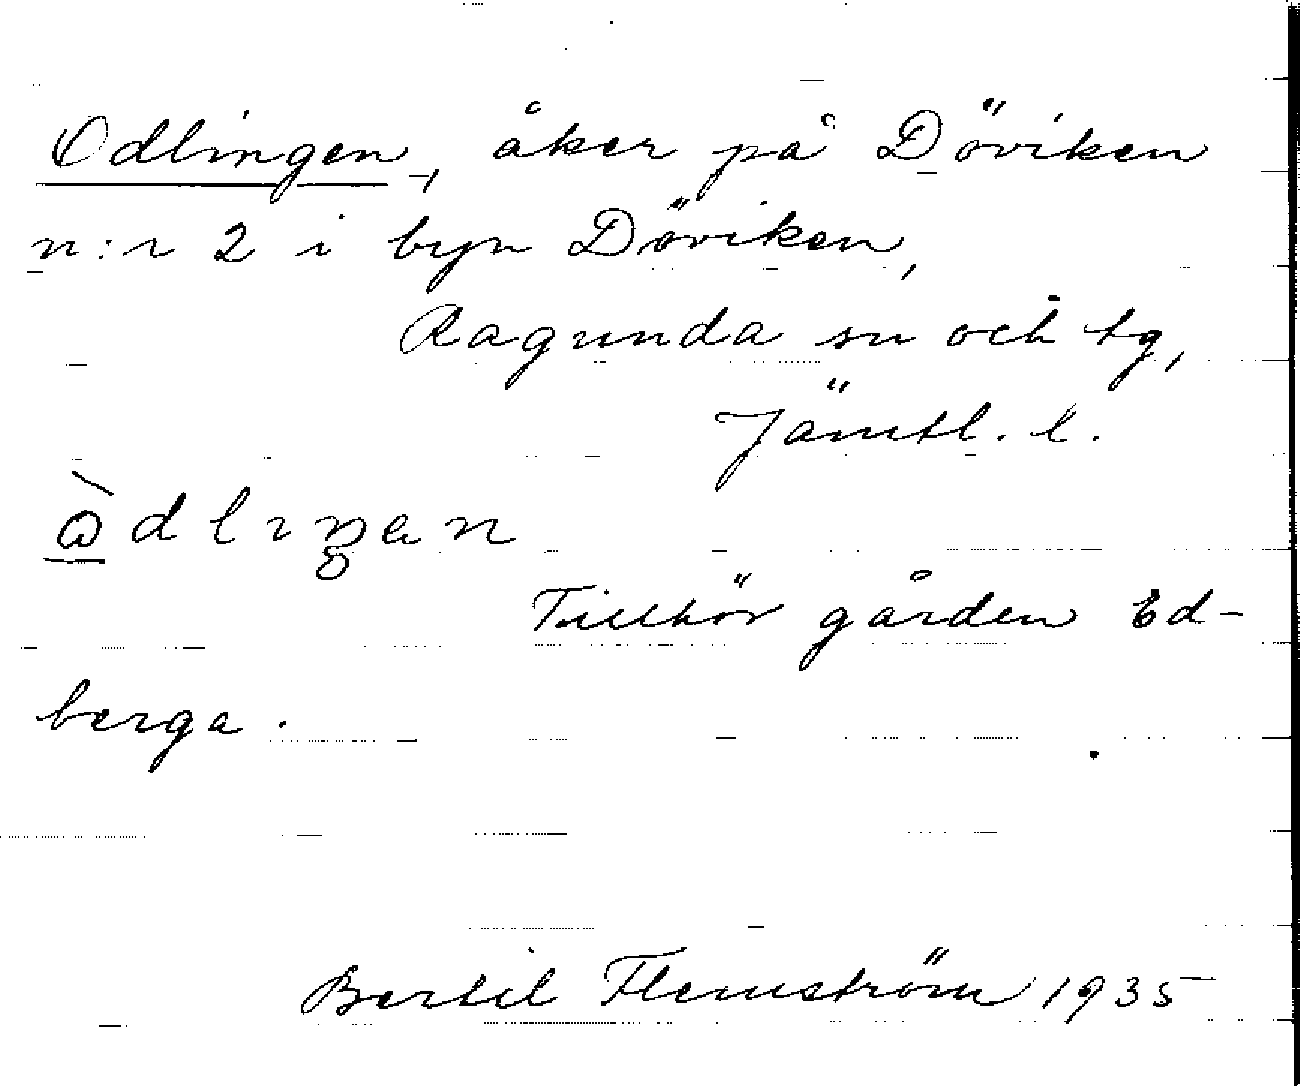 Odlingen, åker på Döviken
n:r 2 i byn Döviken,
Ragunda sn och tg,
Jämtl. l.
Tillhör gården Ed-
berga.
Bertil Flemström 1935